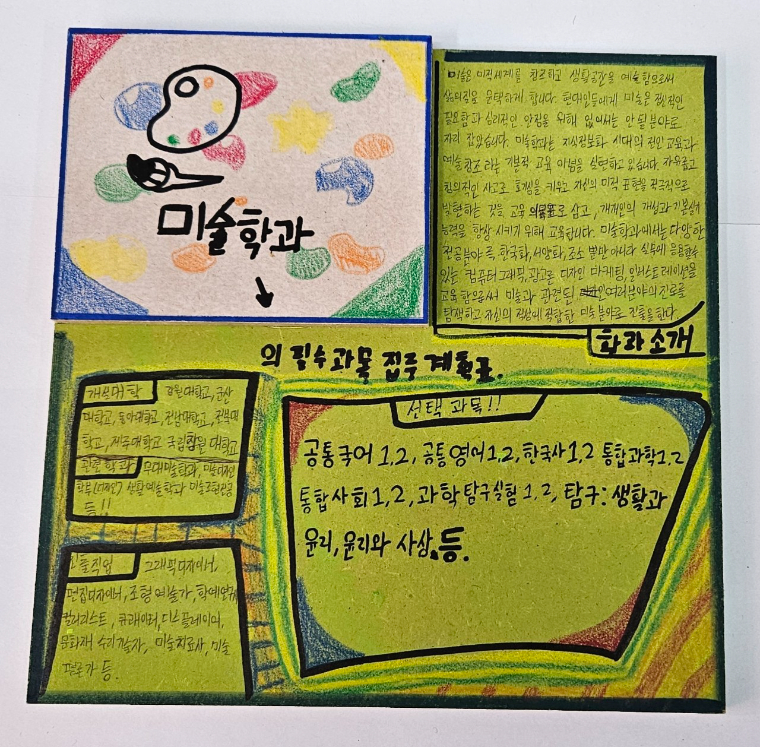 미술학과
미술은 미적세계를 창조하고 생활공간을 예술함으로써
삶의질을 윤택하게 합니다. 현대인들에게 미술은 정신적인
필요함과 심리적인 안정을 위해 없어서는 안 될 분야로
자리 잡았습니다. 미술학과는 지식정보화 시대의 전인교육과
예술창조 라는 기본적 교육 이념을 실현하고 있습니다. 자유롭고
창의적인 사고로 표현을 키우고 자신의 미적 표현을 적극적으로
발현하는 것을 교육 으로 삼고, 개개인의 개성과 기본실기
능력을 향상 시키기 위해 교육합니다. 미술학과에서는 다양한
전공분야 즉, 한국화, 서양화, 조소 뿐만 아니라 실무에 응용할수
있는 컴퓨터그래픽, 광고론, 디자인 마케팅, 일러스트레이션을
교육함으로써 미술과 관련된 여러분야의 진로를
탐색하고 자신의 적성에 적합한 미술분야로 진출을 한다.
학과소개
의 필수과목 집중 계획표.
개설대학 강원대학교, 군산
대학교, 동아대학교, 전남대학교, 전북대
학교, 제주대학교 국립창원 대학교
관련학과 무대미술학과,
학부(디자인) 산학예술학과
등!!
진출직업 그래픽디자이너,
편집디자이너, 조형예술가, 학예연구사
컬러리스트, 큐레이터, 디스플레이어,
문화재 수리기술자, 미술치료사, 미술
평론가 등.
선택 과목!!
공통국어 1,2, 공통영어 1,2, 한국사 1,2 통합과학1,2
통합사회 1,2, 과학탐구실험 1,2, 탐구: 생활과
윤리, 윤리와 사상.등.